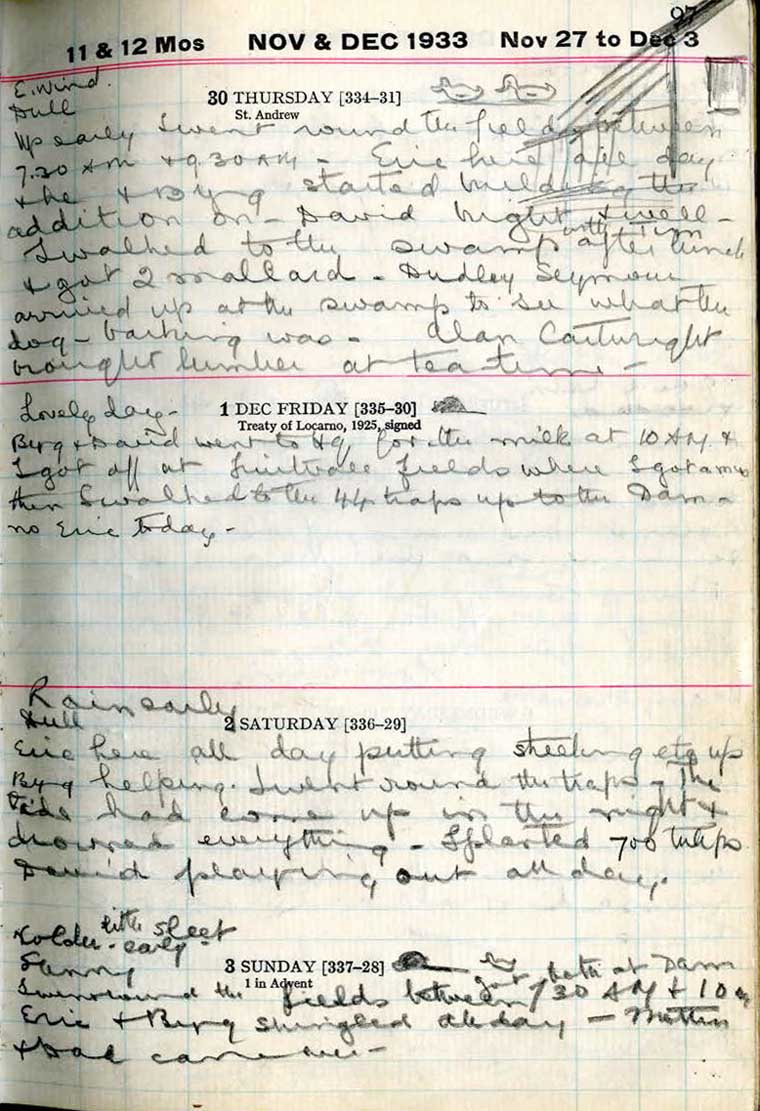 97
11 & 12 Mos NOV & DEC 1933 Nov 27 to Dec 3
E. Wind.
Dull
30 THURSDAY [334-31]
St. Andrew
Up early I went round the fields between
7.30 AM & 9.30 AM - Eric here all day
& he & Byng started building the
addition on - David bright & well -
I walked to the swamp after lunch
with Tim
& got 2 mallard - Dudley Seymour
arrived up at the swamp to see what the
dog-barking was - Alan Cartwright
brought lumber at tea time -
Lovely day-
1 DEC FRIDAY [335-30]
Treaty of Locarno, 1925, signed
Byng & David went to for the milk at 10 AM &
I got off at fields where I got a
then I walked to the 44 traps up to the Dam -
no Eric today -
Rain early
Dull
2 SATURDAY [336-29]
Eric here all day putting sheeting etc up
Byng helping. I went round the traps - The
tide had come up in the night &
drowned everything - I planted 700 tulips
David playing out all day.
Colder - little sleet
early
Sunny
3 SUNDAY [337-28] both at Dam
1 in Advent
I went round the fields between 730 AM & 10
Eric & Byng shingled all day - Mother
& Dad came over -